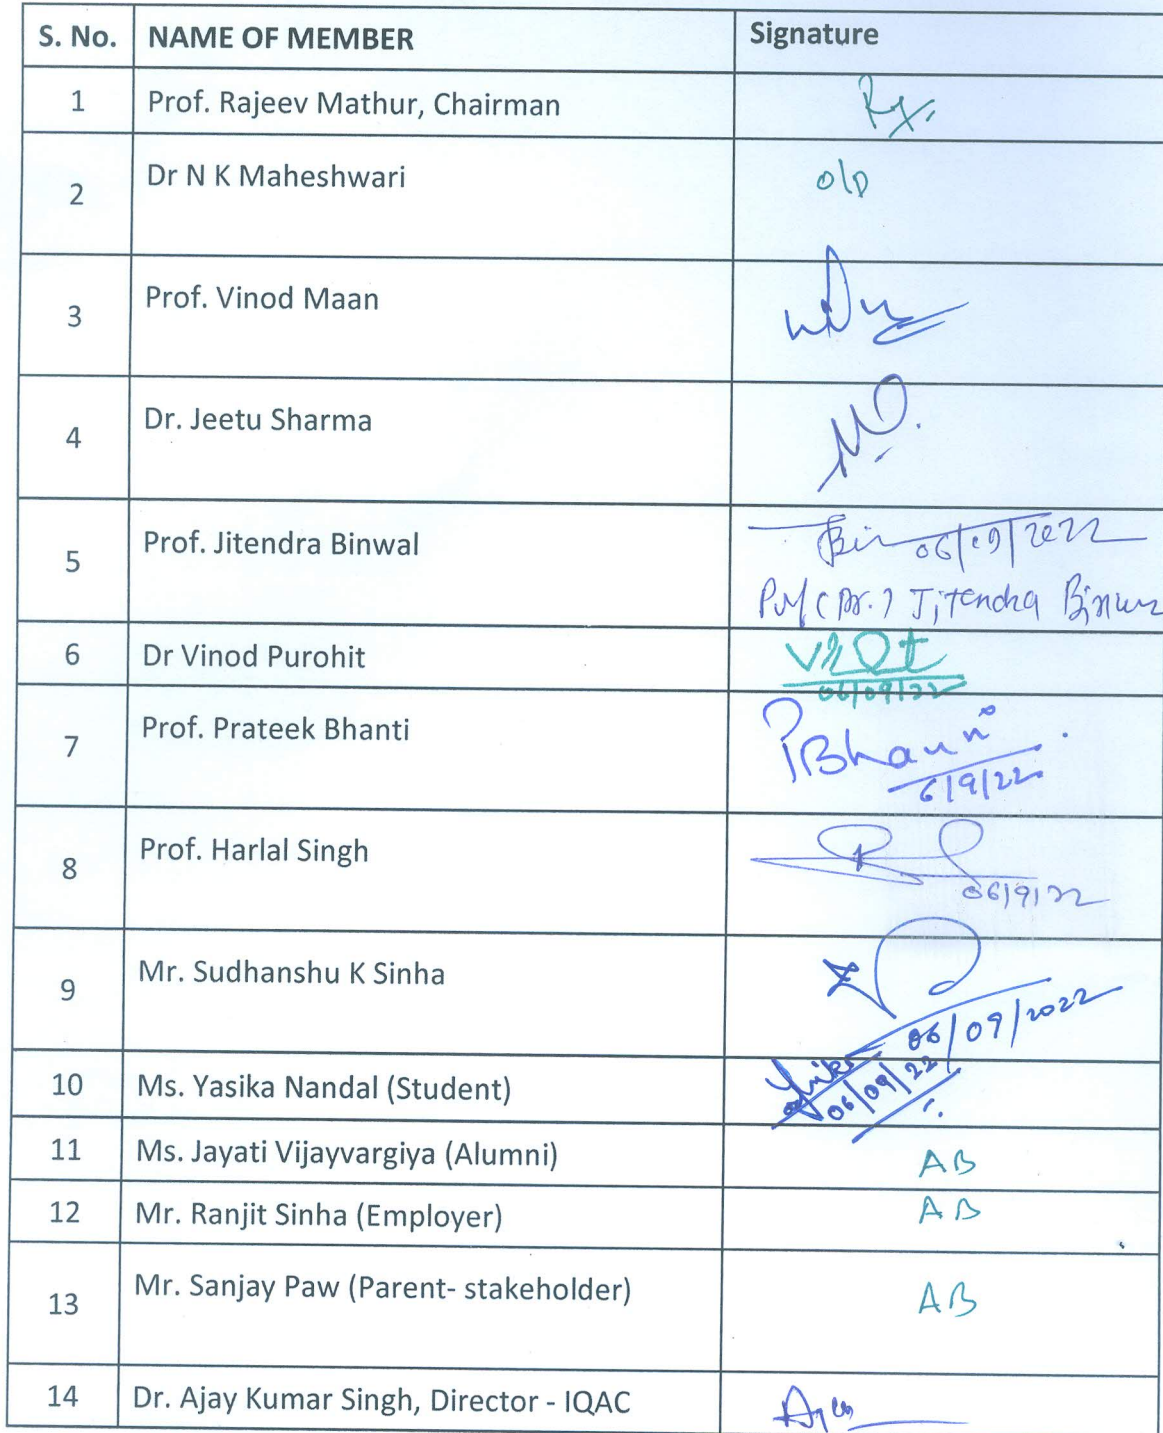 S. No. NAME OF MEMBER Signature
1 Prof. Rajeev Mathur, Chairman
2 Dr N K Maheshwari O/D
3 Prof. Vinod Maan
4 Dr. Jeetu Sharma
5 Prof. Jitendra Binwal 06/09/2022
(Dr.) Jitendra
6 Dr Vinod Purohit
06/09/22
7 Prof. Prateek Bhanti PBhanti
6/9/22
8 Prof. Harlal Singh
06/9/22
9 Mr. Sudhanshu K Sinha
06/09/2022
10 Ms. Yasika Nandal (Student)
06/09/22
11 Ms. Jayati Vijayvargiya (Alumni) AB
12 Mr. Ranjit Sinha (Employer) AB
13 Mr. Sanjay Paw (Parent- stakeholder) AB
14 Dr. Ajay Kumar Singh, Director - IQAC